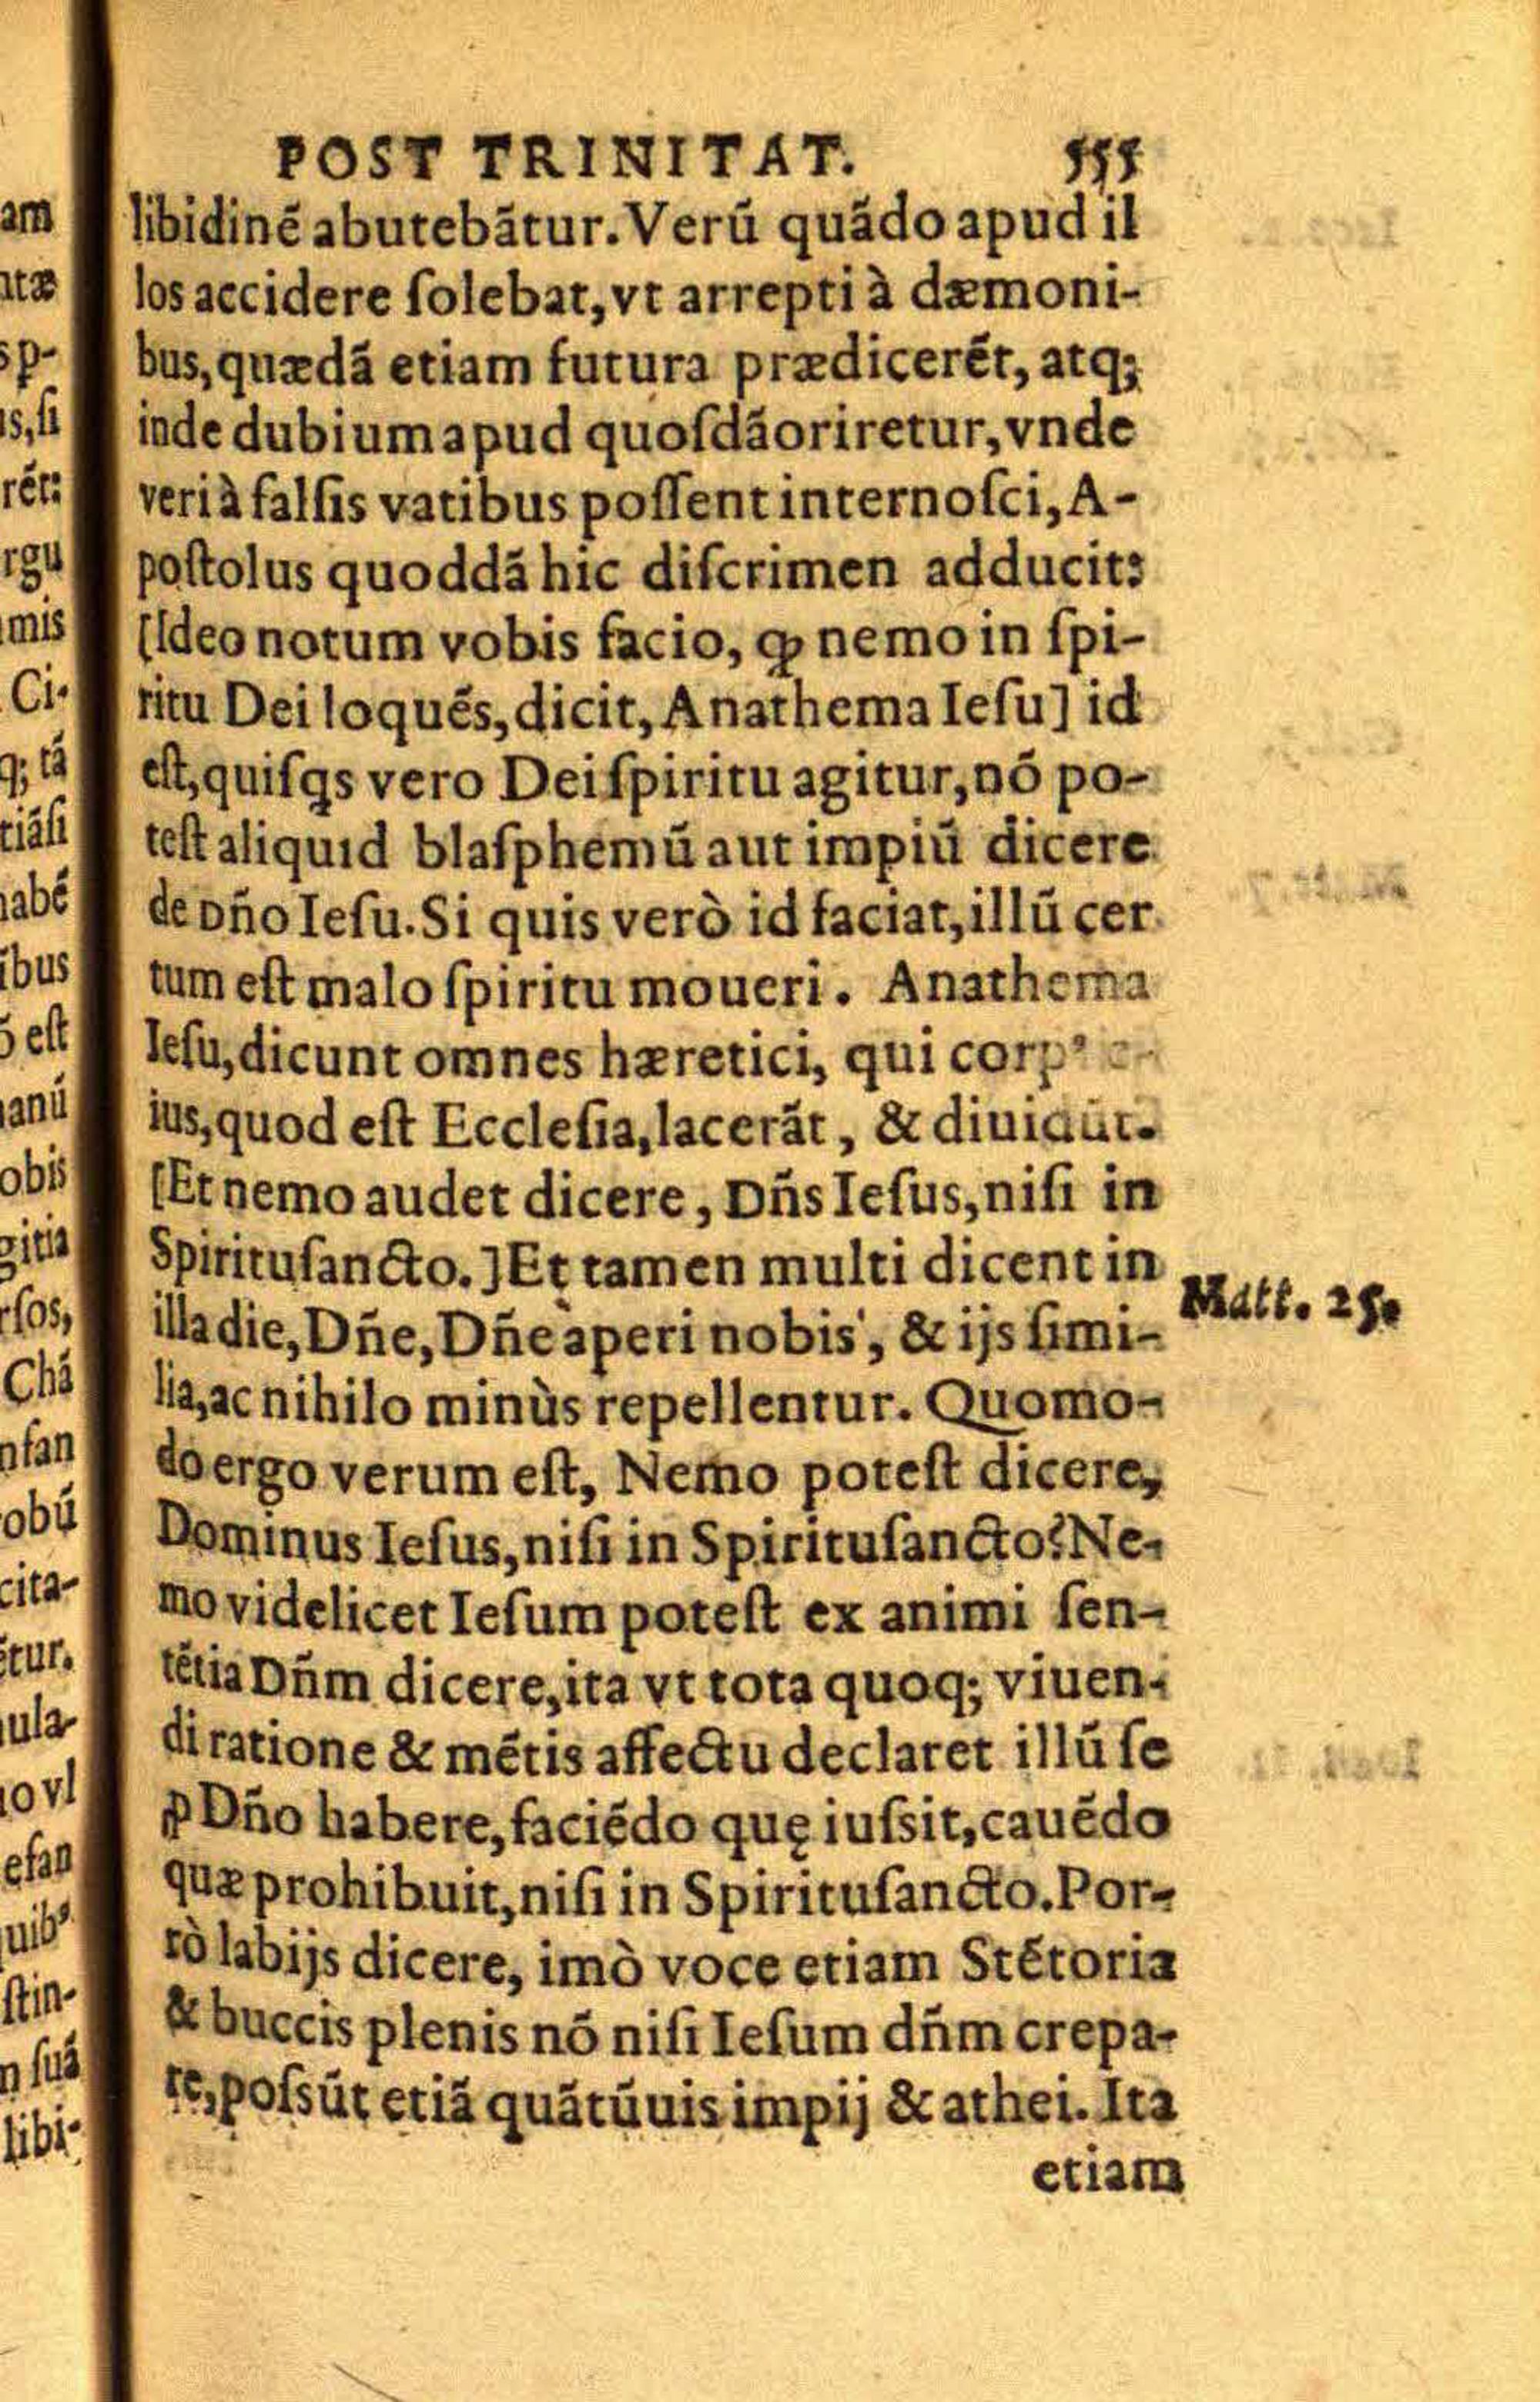 POST TRINITAT. 555
libidinē abutebātur. Verū quādo apud il
los accidere ſolebat, vt arrepti à dæmoni-
bus, quædā etiam futura prædicerēt, atq;
inde dubium apud quoſdā oriretur, vnde
veri à falſis vatibus poſſent internoſci, A-
poſtolus quoddā hic diſcrimen adducit:
[Ideo notum vobis facio, ꝙ nemo in ſpi-
ritu Dei loquēs, dicit, Anathema Ieſu] id
eſt, quiſqs vero Dei ſpiritu agitur, nō po-
teſt aliquid blaſphemū aut impiū dicere
de Dño Ieſu. Si quis verò id faciat, illū cer
tum eſt malo ſpiritu moueri. Anathema
Ieſu, dicunt omnes hæretici, qui corpꝰ e-
ius, quod eſt Eccleſia, lacerāt, & diuidūt.
[Et nemo audet dicere, Dñs Ieſus, niſi in
Spirituſancto.] Et tamen multi dicent in
illa die, Dñe, Dñe àperi nobis', & ijs ſimi-
Matt. 25.
lia, ac nihilo minùs repellentur. Quomo-
do ergo verum eſt, Nemo poteſt dicere,
Dominus Ieſus, niſi in Spirituſancto? Ne-
mo videlicet Ieſum poteſt ex animi ſen-
tētia Dñm dicere, ita vt tota quoq; viuen-
di ratione & mētis affectu declaret illū ſe
ꝓ Dño habere, faciēdo quę iuſsit, cauēdo
quæ prohibuit, niſi in Spirituſancto. Por-
rò labijs dicere, imò voce etiam Stētoria
& buccis plenis nō niſi Ieſum dñm crepa-
re, poſsūt etiā quātūuis impij & athei. Ita
etiam
am
ntæ
s p-
is, ſi
rēt:
rgu
mis
Ci-
q; tā
tiāſi
habē
ibus
ō eſt
anū
obis
gitia
rſos,
Chā
nſan
obū
cita-
ētur.
ula-
o vl
efan
uibꝰ
ſtin-
n ſuā
libi-